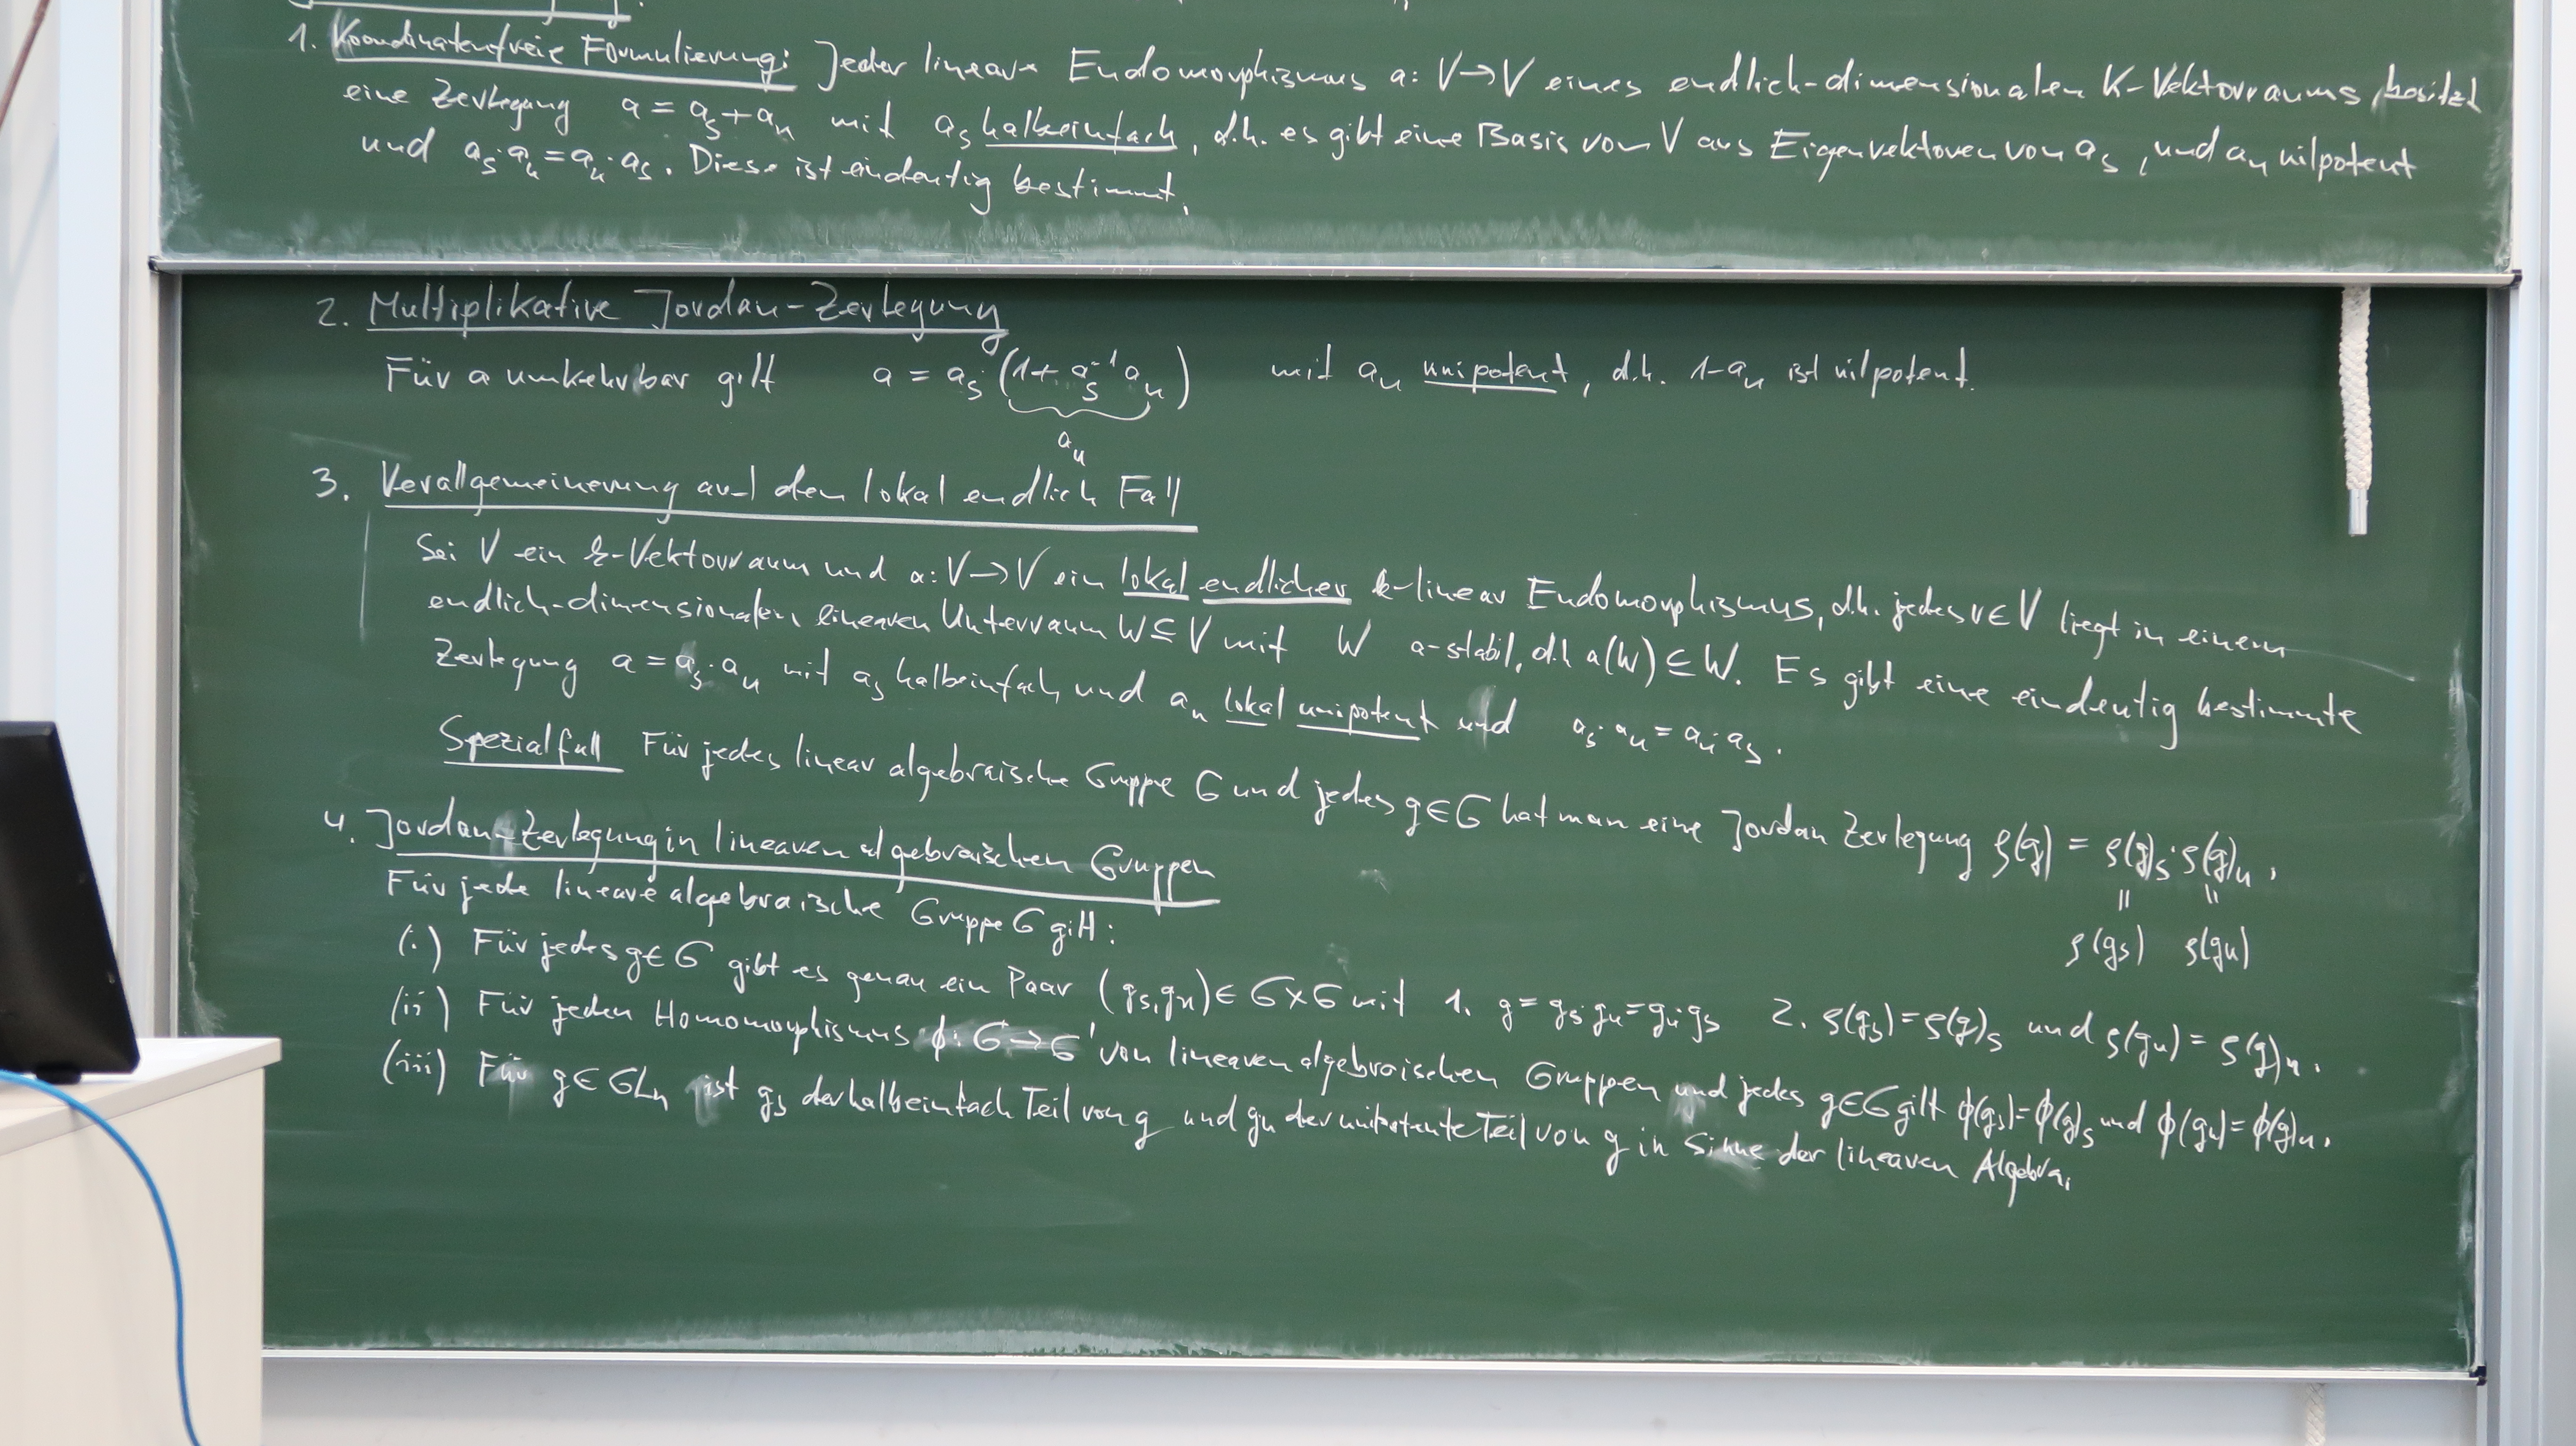 1. Koordinatenfreie Formulierung: Jeder lineare Endomorphismus a: V→V eines endlich-dimensionalen K-Vektorraums besitzt
eine Zerlegung a = a_s + a_n mit a_s halbeinfach, d.h. es gibt eine Basis von V aus Eigenvektoren von a_s, und a_n nilpotent
und a_s·a_n = a_n·a_s. Diese ist eindeutig bestimmt.
2. Multiplikative Jordan-Zerlegung
Für a umkehrbar gilt a = a_s·(1 + a_s^{-1} a_n) mit a_u unipotent, d.h. 1-a_u ist nilpotent.
a_u
3. Verallgemeinerung auf den lokal endlich Fall
Sei V ein k-Vektorraum und a: V→V ein lokal endlicher k-linear Endomorphismus, d.h. jedes v∈V liegt in einem
endlich-dimensionalen linearen Unterraum W⊆V mit W a-stabil, d.h. a(W)⊆W. Es gibt eine eindeutig bestimmte
Zerlegung a = a_s·a_u mit a_s halbeinfach und a_u lokal unipotent und a_s·a_u = a_u·a_s.
Spezialfall Für jedes linear algebraische Gruppe G und jedes g∈G hat man eine Jordan Zerlegung ρ(g) = ρ(g)_s·ρ(g)_u.
= =
ρ(g_s) ρ(g_u)
4. Jordan-Zerlegung in linearen algebraischen Gruppen
Für jede lineare algebraische Gruppe G gilt:
(i) Für jedes g∈G gibt es genau ein Paar (g_s,g_u)∈G×G mit 1. g = g_s·g_u = g_u·g_s 2. ρ(g_s) = ρ(g)_s und ρ(g_u) = ρ(g)_u.
(ii) Für jeden Homomorphismus ϕ: G→G' von linearen algebraischen Gruppen und jedes g∈G gilt ϕ(g_s) = ϕ(g)_s und ϕ(g_u) = ϕ(g)_u.
(iii) Für g∈GL_n ist g_s der halbeinfach Teil von g und g_u der unipotente Teil von g in Sinne der linearen Algebra.